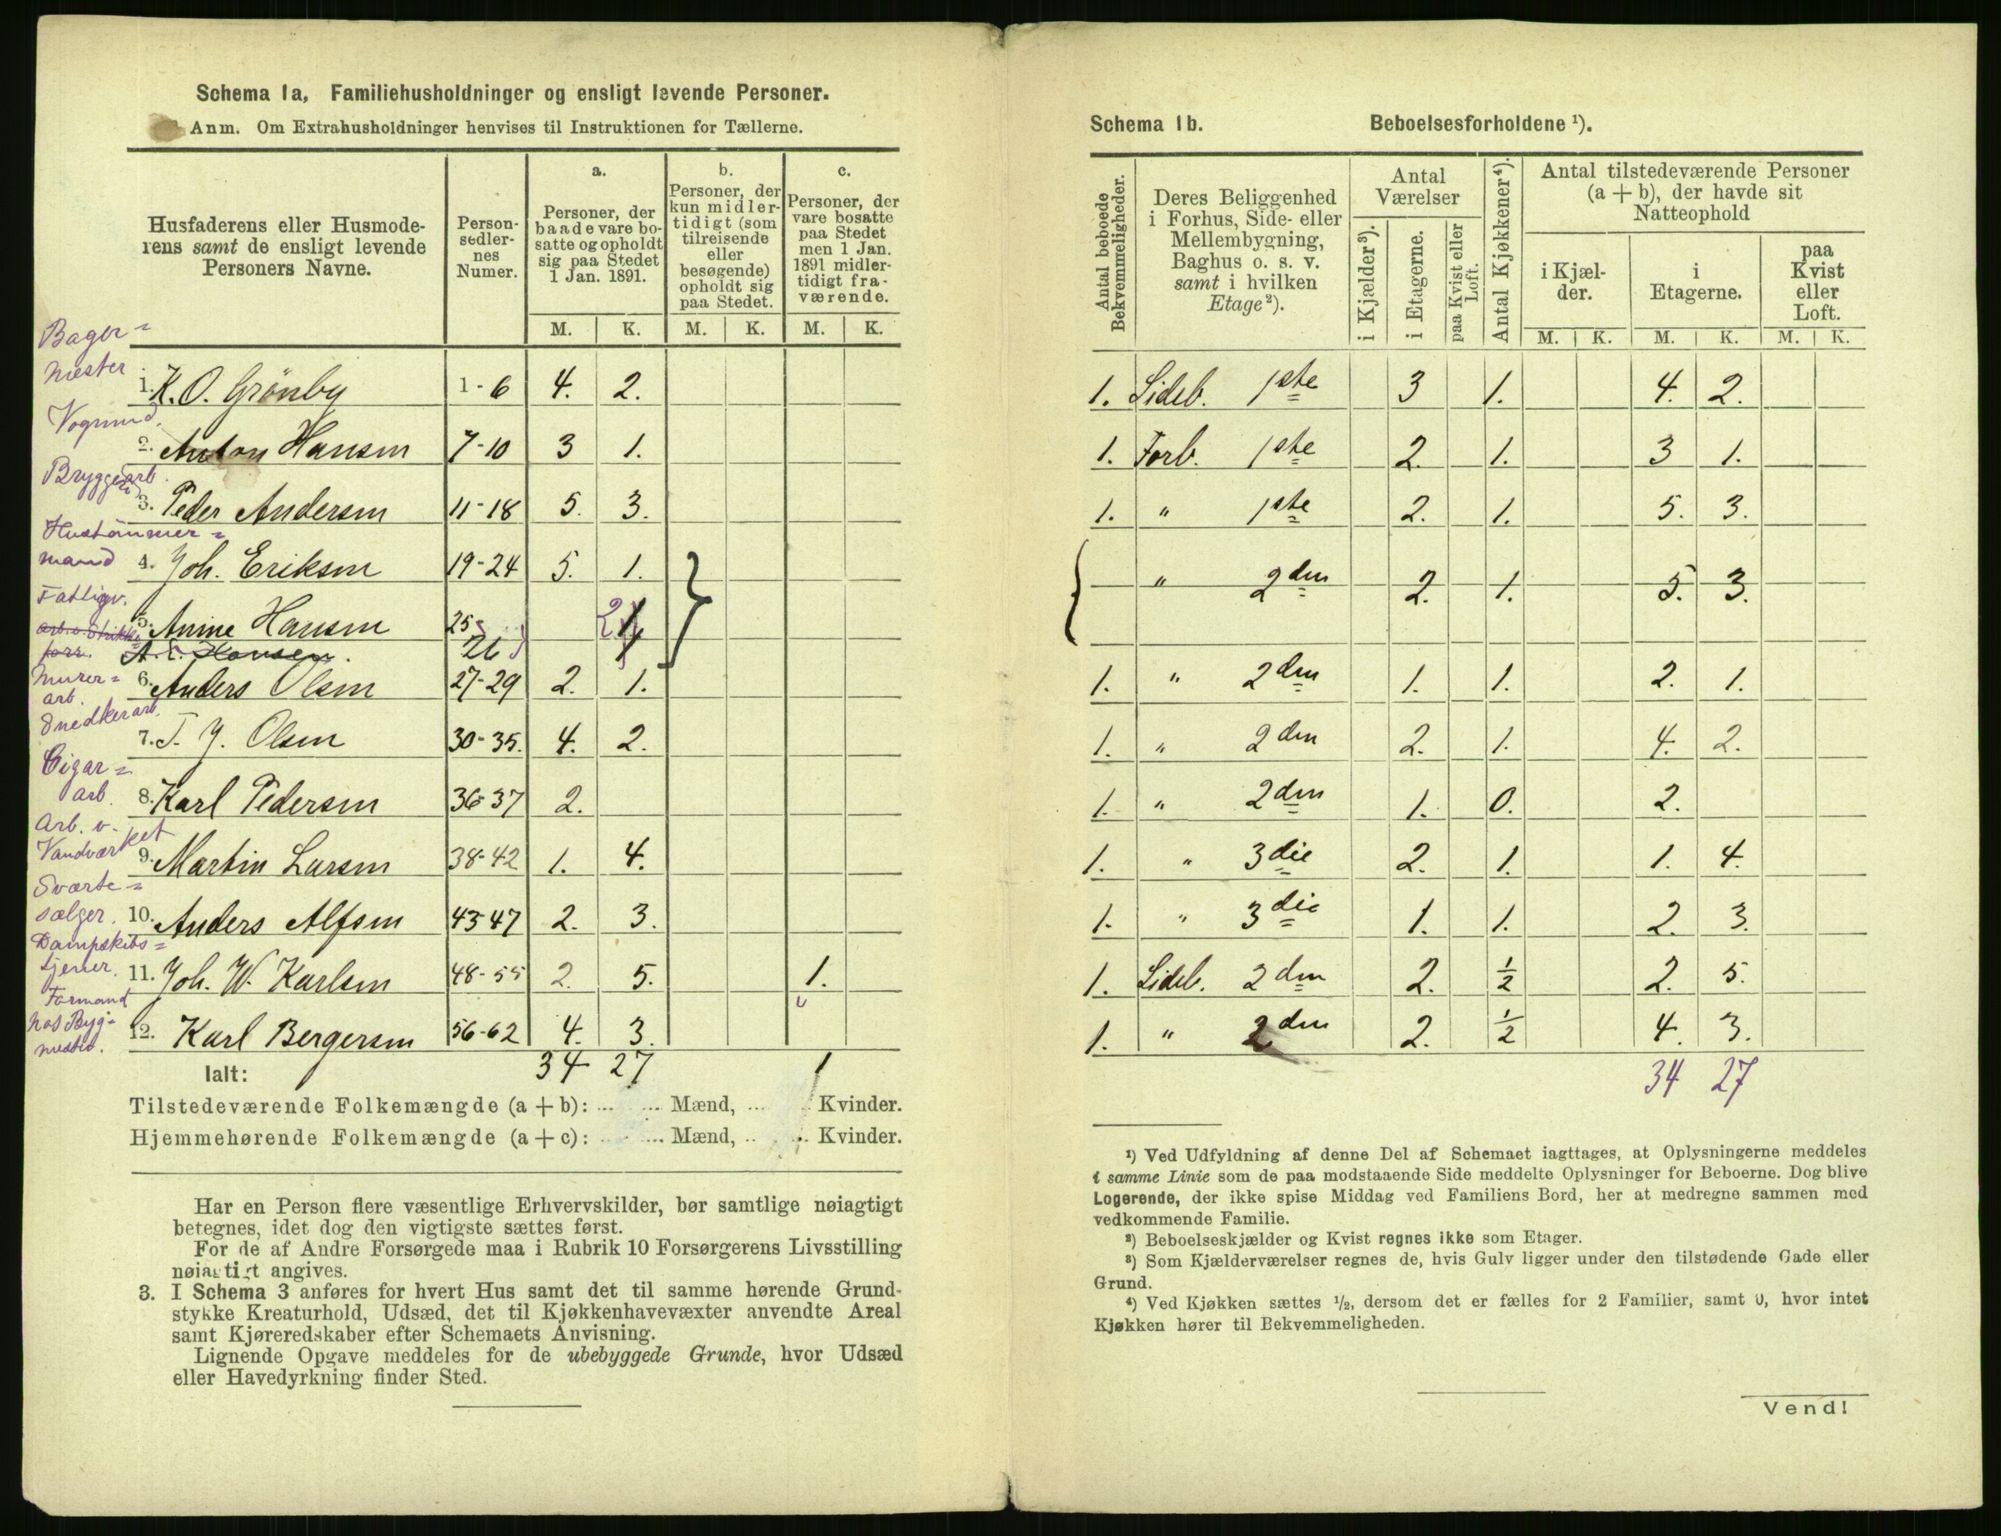 Schema 1a, Familiehusholdninger og ensligt levende Personer.
Anm. Om Extrahusholdninger henvises til Instruktionen for Tællerne.
Husfaderens eller Husmoderens samt de ensligt levende Personers Navne.
Personsedlernes Numer.
a.
Personer, der baade vare bosatte og opholdt sig paa Stedet 1 Jan. 1891.
b.
Personer, der kun midlertidigt (som tilreisende eller besøgende) opholdt sig paa Stedet.
c.
Personer, der vare bosatte paa Stedet men 1 Jan. 1891 midlertidigt fraværende.
M. K. M. K. M. K.
Bager=
mester
1. K. O. Grönby 1-6 4. 2.
Vognmd.
2. Anton Hansen 7-10 3 1.
Bryggeriarb.
3. Peder Andersen 11-18 5. 3.
Hustömmer=
mand 4. Joh. Eriksen 19-24 5. 1.
Fattigv.
5. Anine Hansen 25 2 1
A. E. Hansen. 26 1
Murer=
arb.
6. Anders Olsen 27-29 2. 1.
Snedkerarb.
7. T. J. Olsen 30-35. 4. 2.
Cigar=
arb. 8. Karl Pedersen 36-37 2.
Arb. v.
Vandværket
9. Martin Larsen 38-42 1. 4.
Sværte=
sælger. 10. Anders Alfsen 43-47 2. 3.
Dampskibs=
tjener. 11. Joh. W. Karlsen 48-55 2. 5. 1.
Formand
hos Byg=
mester. 12. Karl Bergersen 56-62 4. 3.
Ialt: 34 27 1
Tilstedeværende Folkemængde (a + b): ... ... Mænd, ... Kvinder.
Hjemmehørende Folkemængde (a + c): ... ... Mænd, ... Kvinder.
Har en Person flere væsentlige Erhvervskilder, bør samtlige nøiagtigt
betegnes, idet dog den vigtigste sættes først.
For de af Andre Forsørgede maa i Rubrik 10 Forsørgerens Livsstilling
nøiagtigt angives.
3. I Schema 3 anføres for hvert Hus samt det til samme hørende Grund-
stykke Kreaturhold, Udsæd, det til Kjøkkenhavevæxter anvendte Areal
samt Kjøreredskaber efter Schemaets Anvisning.
Lignende Opgave meddeles for de ubebyggede Grunde, hvor Udsæd
eller Havedyrkning finder Sted.
Schema 1b. Beboelsesforholdene ¹).
Antal beboede Bekvemmeligheder.
Deres Beliggenhed i Forhus, Side- eller Mellembygning, Baghus o. s. v. samt i hvilken Etage ²).
Antal Værelser
i Kjælder ³).
i Etagerne.
paa Kvist eller Loft.
Antal Kjøkkener ⁴).
Antal tilstedeværende Personer (a + b), der havde sit Natteophold
i Kjælder.
i Etagerne.
paa Kvist eller Loft.
M. K. M. K. M. K.
1. Sideb. 1ste 3 1. 4. 2.
1. Forb. 1ste 2. 1. 3 1.
1. " 1ste 2. 1. 5. 3.
" 2den 2. 1. 5. 3.
1. " 2den 1. 1. 2. 1.
1. " 2den 2. 1. 4. 2.
1. " 2den 1. 0. 2.
1. " 3die 2. 1. 1. 4.
1. " 3die 1. 1. 2. 3.
1. Sideb. 2den 2. ½ 2. 5.
1. " 2den 2. ½ 4. 3.
34 27
¹) Ved Udfyldning af denne Del af Schemaet iagttages, at Oplysningerne meddeles
i samme Linie som de paa modstaaende Side meddelte Oplysninger for Beboerne. Dog blive
Logerende, der ikke spise Middag ved Familiens Bord, her at medregne sammen med
vedkommende Familie.
²) Beboelseskjælder og Kvist regnes ikke som Etager.
³) Som Kjælderværelser regnes de, hvis Gulv ligger under den tilstødende Gade eller
Grund.
⁴) Ved Kjøkken sættes ½, dersom det er fælles for 2 Familier, samt 0, hvor intet
Kjøkken hører til Bekvemmeligheden.
Vend!